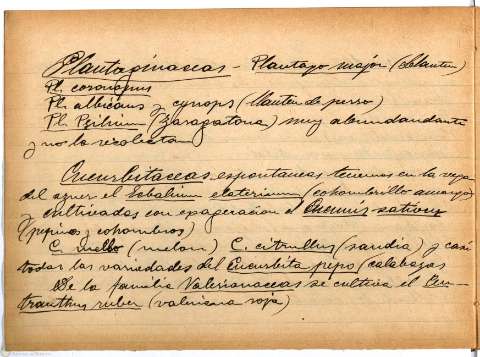 Plantaginaceas - Plantago major (Llanten)
Pl. coronopus
Pl. albicans y cynops (llanten de perro)
Pl. Psilium (Zaragatona) muy abundandante
y no la recolectan
Cucurbitaceas espontaneas tenemos en la vega
del el Ecbalium elaterium (cohombrillo amargo)
y cultivadas con exageracion el Cucumis sativus
(pepinos y cohombros)
C. mello (melon) C. citrullus (sandia) y casi
todas las variedades del Cucurbita pepo (calabazas
De la familia Valerianaceas se cultiva el Cen-
tranthus ruber (valeriana roja)